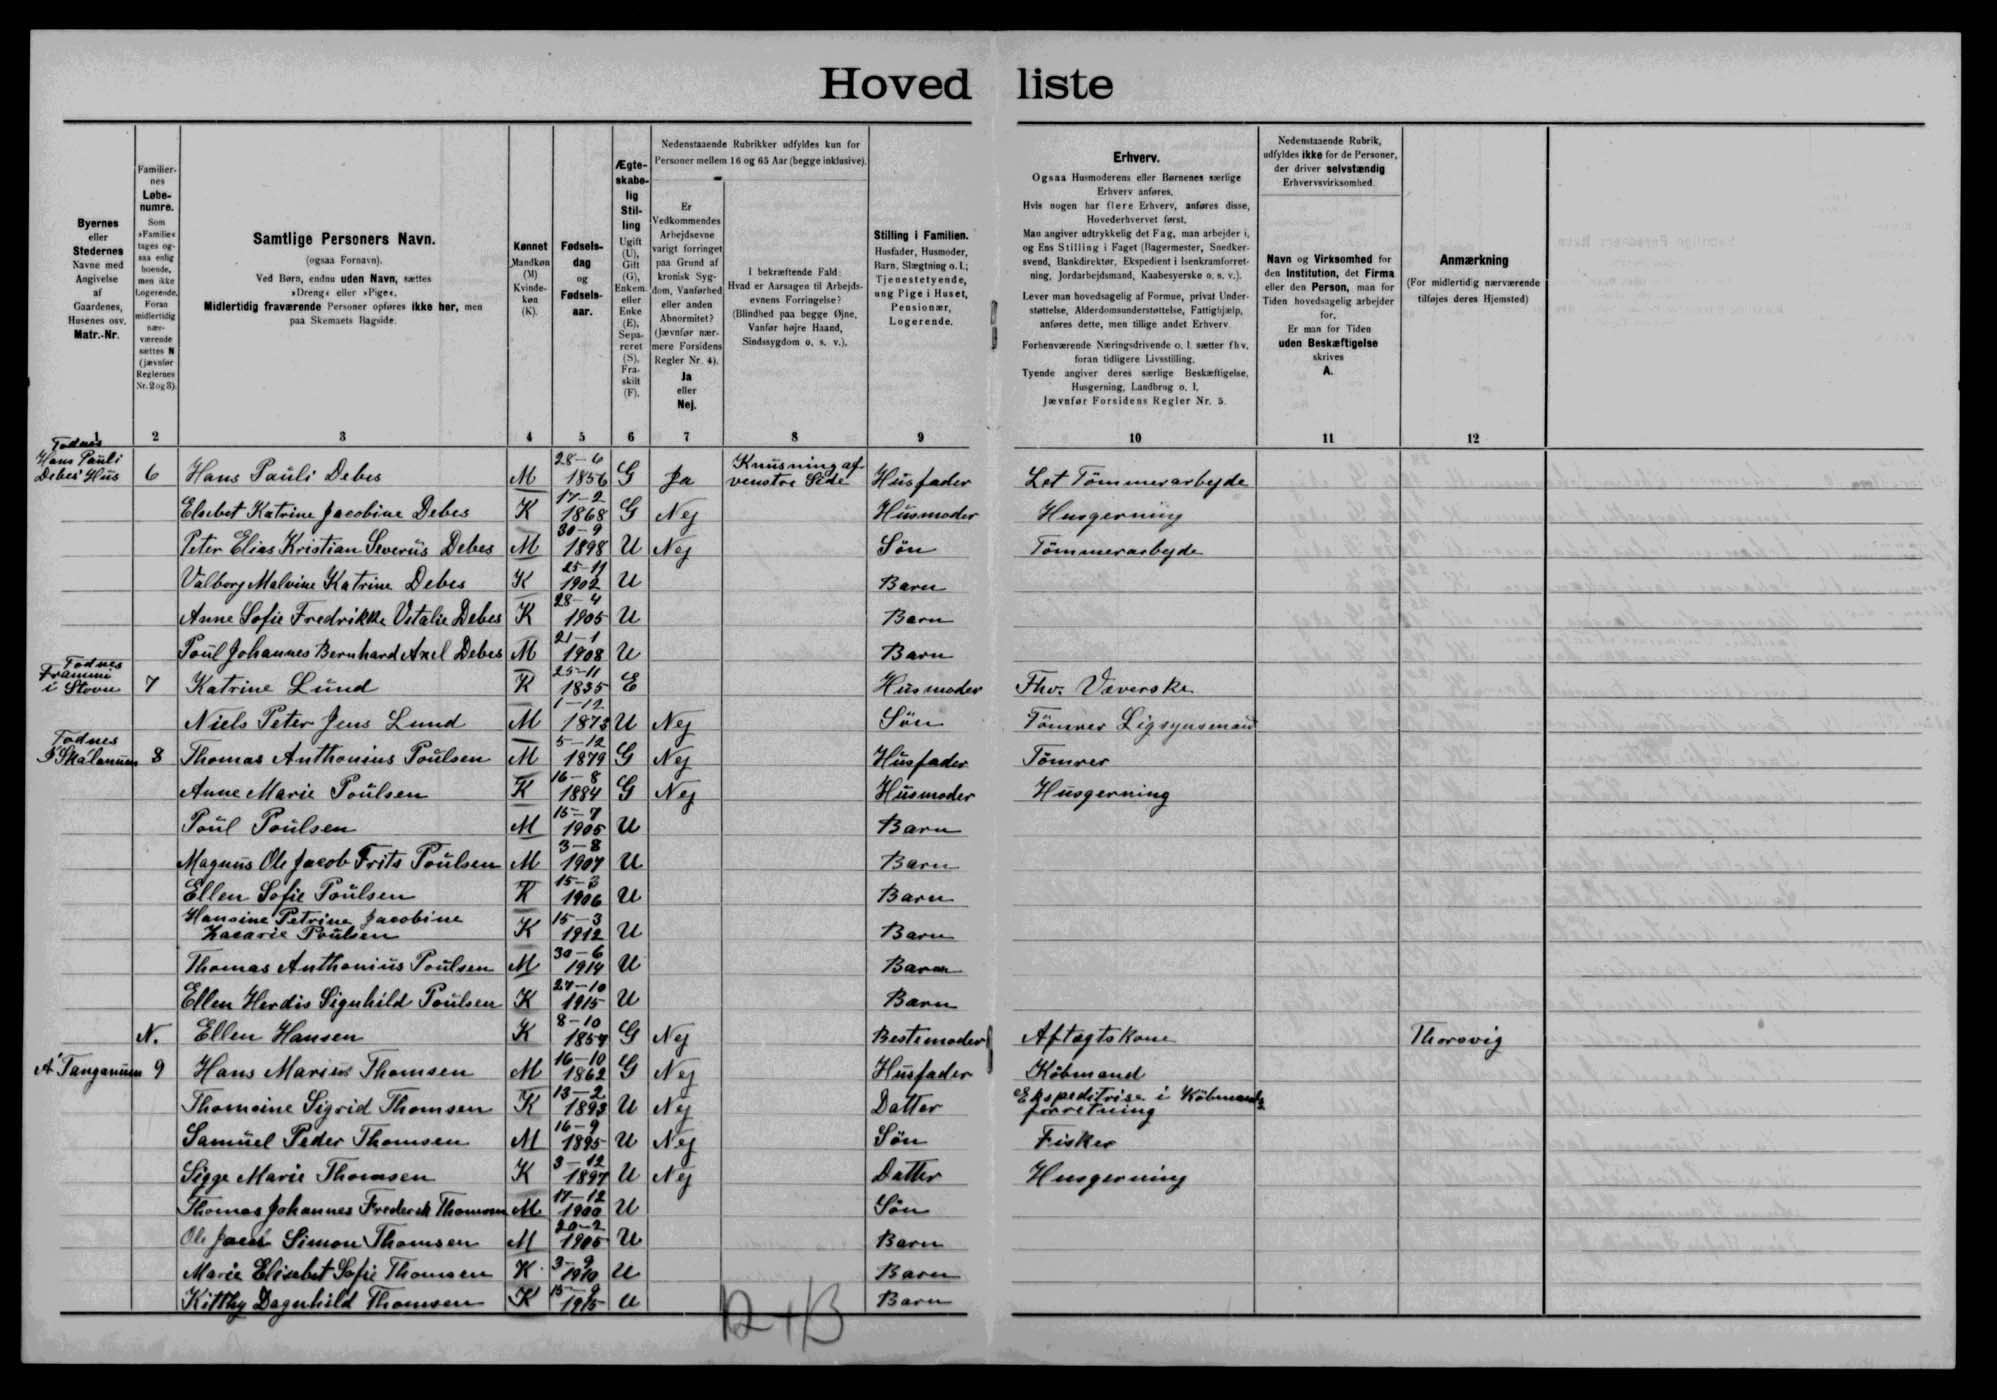 Hovedliste
Nedenstaaende Rubrikker udfyldes kun for
Personer mellem 16 og 65 Aar (begge inklusive).
Nedenstaaende Rubrik,
udfyldes ikke for de Personer,
der driver selvstændig
Erhvervsvirksomhed.
Byernes
eller
Stedernes
Navne med
Angivelse
af
Gaardenes,
Husenes osv.
Matr.-Nr.
Familier-
nes
Løbe-
numre.
Som
»Familie«
tages og-
saa enlig
boende,
men ikke
Logerende.
Foran
midlertidig
nær-
værende
sættes N
(jævnfør
Reglernes
Nr. 2 og 3).
Samtlige Personers Navn.
(ogsaa Fornavn).
Ved Børn, endnu uden Navn, sættes
»Dreng« eller »Pige«.
Midlertidig fraværende Personer opføres ikke her, men
paa Skemaets Bagside.
Kønnet
Mandkøn
(M)
Kvinde-
køn
(K).
Fødsels-
dag
og
Fødsels-
aar.
Ægte-
skabe-
lig
Stil-
ling
Ugift
(U),
Gift
(G),
Enkem.
eller
Enke
(E),
Sepa-
reret
(S),
Fra-
skilt
(F).
Er
Vedkommendes
Arbejdsevne
varigt forringet
paa Grund af
kronisk Syg-
dom, Vanførhed
eller anden
Abnormitet?
(Jævnfør nær-
mere Forsidens
Regler Nr. 4).
Ja
eller
Nej.
I bekræftende Fald:
Hvad er Aarsagen til Arbejds-
evnens Forringelse?
(Blindhed paa begge Øjne,
Vanfør højre Haand,
Sindssygdom o. s. v.).
Stilling i Familien.
Husfader, Husmoder,
Barn, Slægtning o. l.;
Tjenestetyende,
ung Pige i Huset,
Pensionær,
Logerende.
Erhverv.
Ogsaa Husmoderens eller Børnenes særlige
Erhverv anføres.
Hvis nogen har flere Erhverv, anføres disse,
Hovederhvervet først.
Man angiver udtrykkelig det Fag, man arbejder i,
og Ens Stilling i Faget (Bagermester, Snedker-
svend, Bankdirektør, Ekspedient i Isenkramforret-
ning, Jordarbejdsmand, Kaabesyerske o. s. v.).
Lever man hovedsagelig af Formue, privat Under-
støttelse, Alderdomsunderstøttelse, Fattighjælp,
anføres dette, men tillige andet Erhverv.
Forhenværende Næringsdrivende o. l. sætter fhv.
foran tidligere Livsstilling.
Tyende angiver deres særlige Beskæftigelse,
Husgerning, Landbrug o. l.
Jævnfør Forsidens Regler Nr. 5.
Navn og Virksomhed for
den Institution, det Firma
eller den Person, man for
Tiden hovedsagelig arbejder
for.
Er man for Tiden
uden Beskæftigelse
skrives
A.
Anmærkning
(For midlertidig nærværende
tilføjes deres Hjemsted)
1 2 3 4 5 6 7 8 9 10 11 12
Todnes
Hans Pauli
Debes' Hus 6 Hans Pauli Debes M 28-6 1856 G Ja Knusning af venstre Side Husfader Let Tömmerarbejde
Elsebet Katrine Jacobine Debes K 17-2 1868 G Nej Husmoder Husgerning
Peter Elias Kristian Severus Debes M 30-9 1898 U Nej Sön Tömmerarbejde
Valborg Malvine Katrine Debes K 25-11 1902 U Barn
Anne Sofie Fredrikke Vitalie Debes K 28-4 1905 U Barn
Poul Johannes Bernhard Axel Debes M 21-1 1908 U Barn
Todnes
Frammi
i Stovu 7 Katrine Lund K 25-11 1835 E Husmoder Fhv. Væverske
Niels Peter Jens Lund M 1-12 1873 U Nej Sön Tömrer Ligsynsmand
Todnes
I Skálanum 8 Thomas Anthonius Poulsen M 5-12 1879 G Nej Husfader Tömrer
Anne Marie Poulsen K 16-8 1884 G Nej Husmoder Husgerning
Poul Poulsen M 15-7 1905 U Barn
Magnus Ole Jacob Frits Poulsen M 3-8 1907 U Barn
Ellen Sofie Poulsen K 15-3 1906 U Barn
Hansine Petrine Jacobine
Zacarie Poulsen K 15-3 1912 U Barn
Thomas Anthonius Poulsen M 30-6 1914 U Barn
Ellen Herdis Signhild Poulsen K 27-10 1915 U Barn
N. Ellen Hansen K 8-10 1857 G Nej Bestemoder Aftægtskone Thorsvig
Á Tanganum 9 Hans Marius Thomsen M 16-10 1862 G Nej Husfader Köbmand
Thomsine Sigrid Thomsen K 13-2 1893 U Nej Datter Ekspeditrise i Köbmands
forretning
Samuel Peder Thomsen M 16-9 1895 U Nej Sön Fisker
Sigge Marie Thomsen K 3-12 1897 U Nej Datter Husgerning
Thomas Johannes Frederik Thomsen M 17-12 1900 U Sön
Ole Jacob Simon Thomsen M 20-2 1905 U Barn
Marie Elisabet Sofie Thomsen K 3-9 1910 U Barn
Kitthy Dagnhild Thomsen K 15-9 1915 U Barn